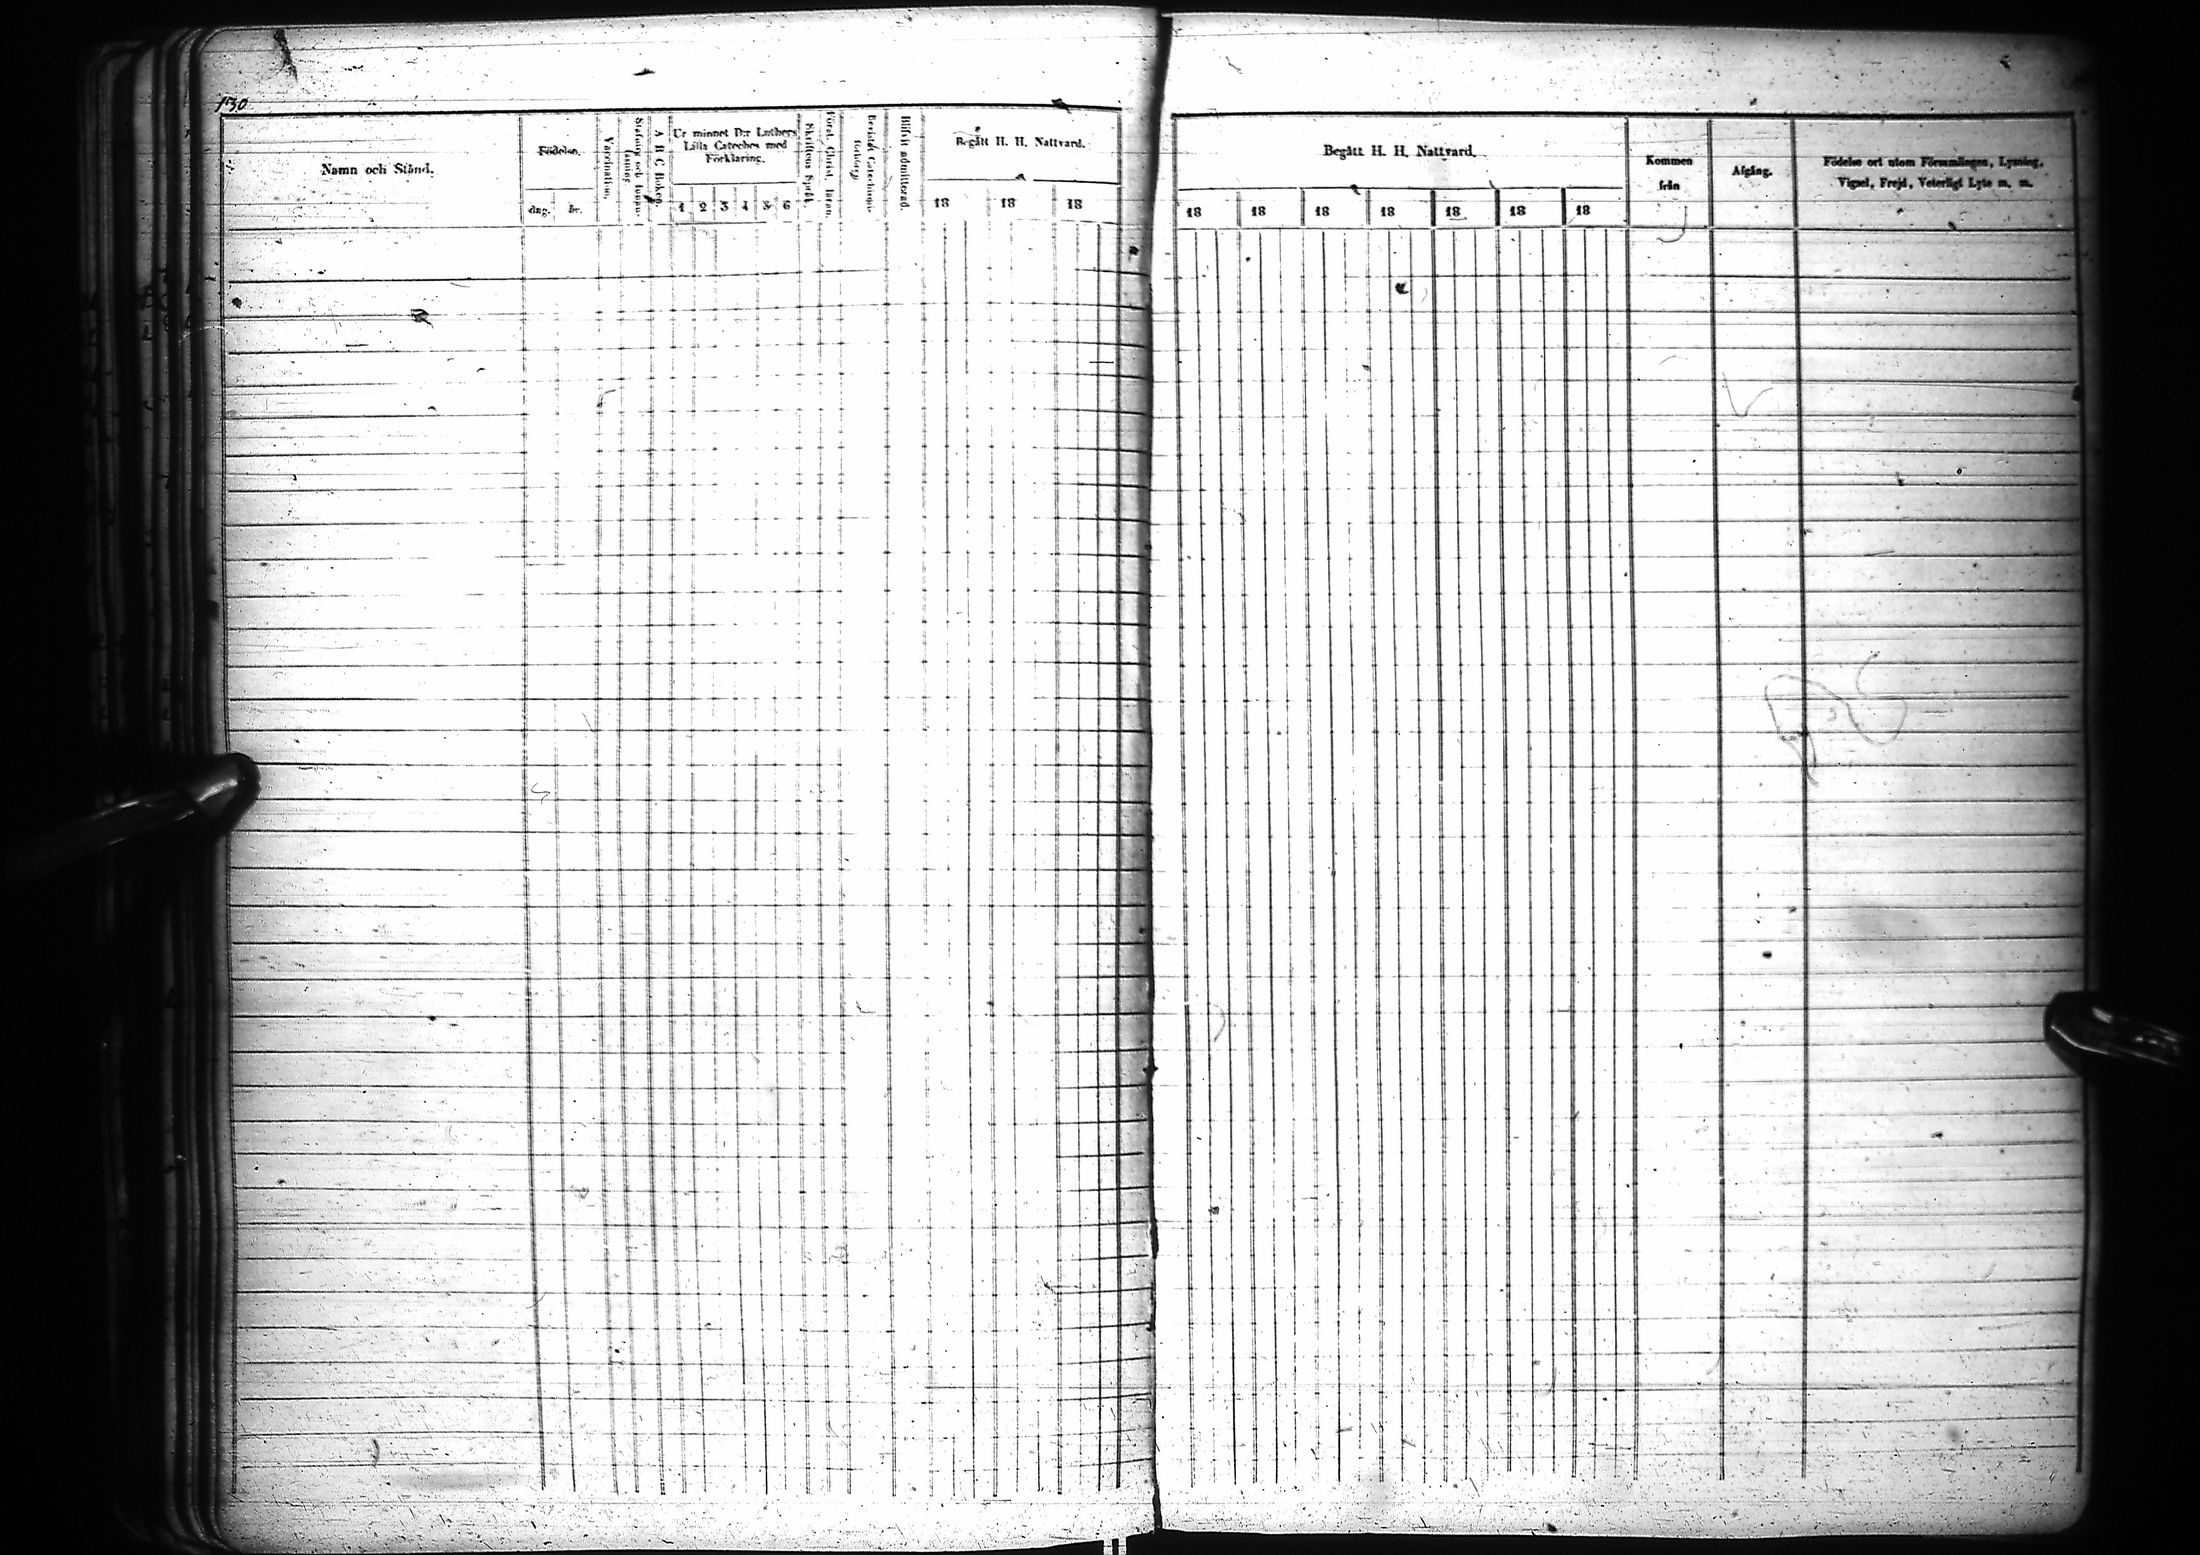 130
Namn och Stånd.
Födelse.
dag. år.
Vaccination.
Stafning och Innan-
läsning
A B C Boken.
Ur minnet D:r Luthers
Lilla Cateches med
Förklaring.
1 2 3 4 5 6
Skriftens Språk.
Först. Christ. läran.
Bevistat Catechismi-
förhörer.
Blifvit admitterad.
Begått H. H. Nattvard.
18 18 18
Begått H. H. Nattvard.
18 18 18 18 18 18 18
Kommen
från
Afgång.
Födelse ort utom Församlingen, Lysning,
Vigsel, Frejd, Veterligt Lyte m. m.